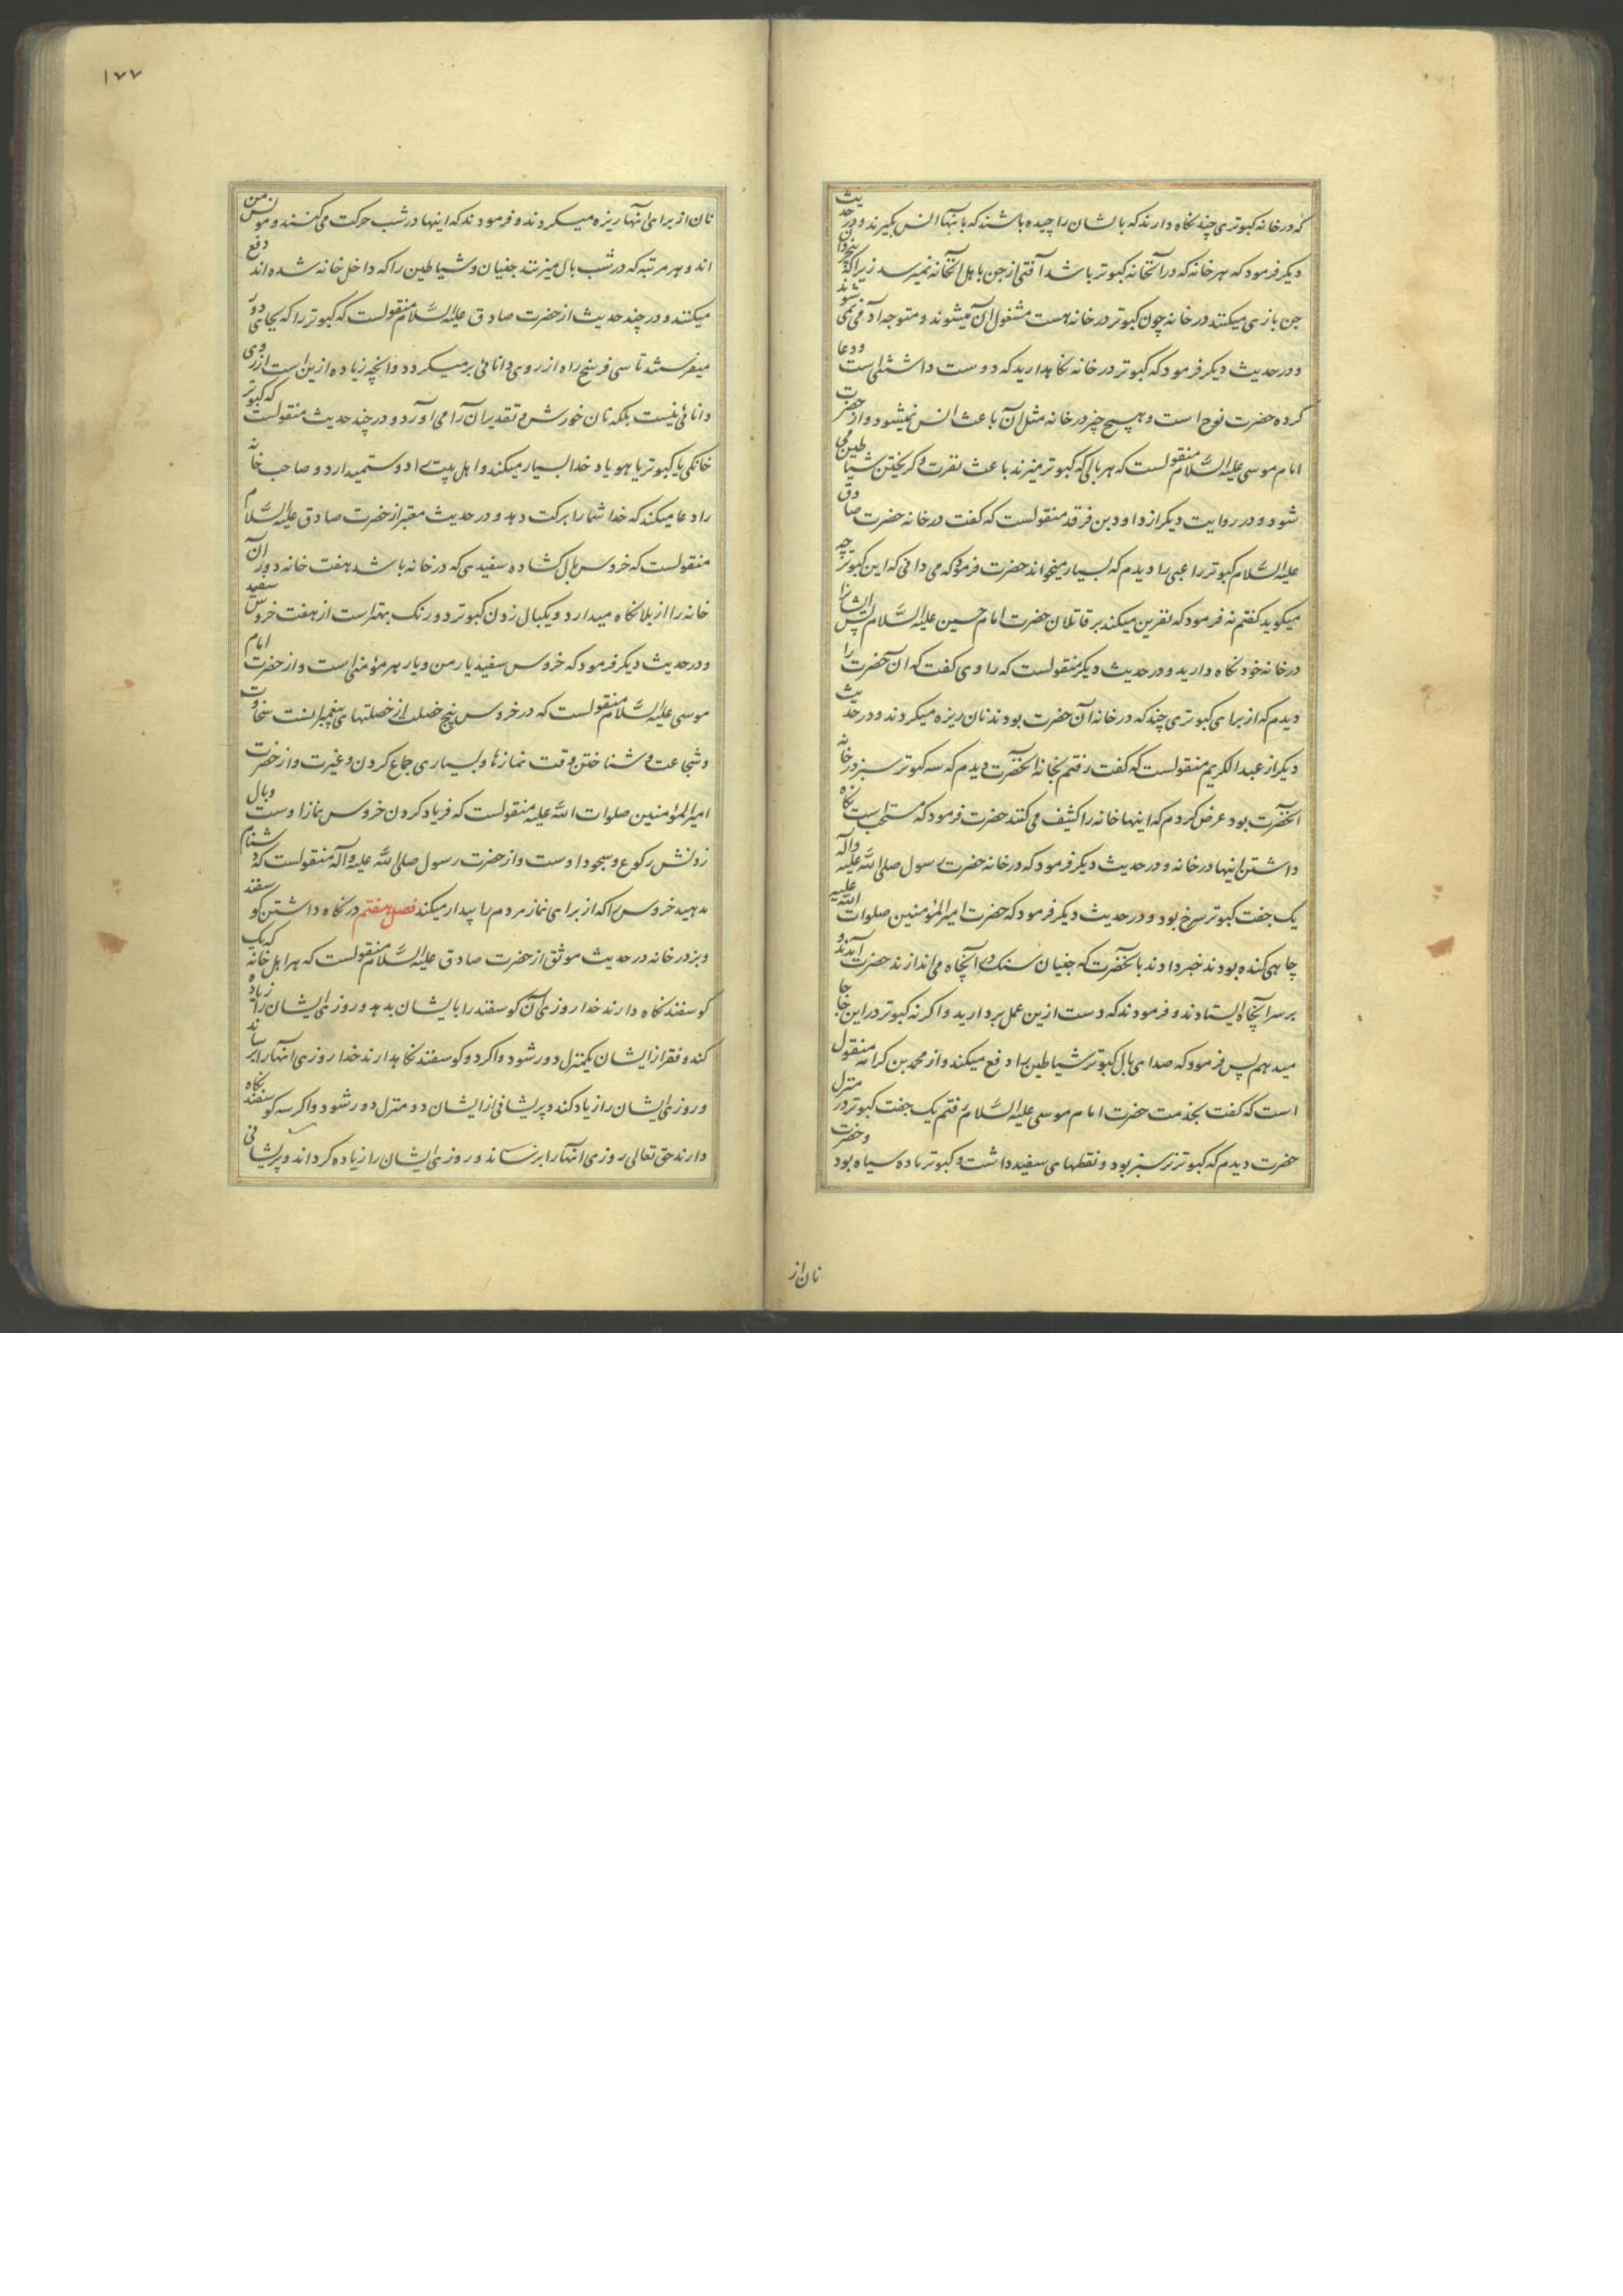 که در خانه کبوتری چند نگاه دارند که بالشان را چیده باشند که بانها انس بگیرند و در حدیث
دیگر فرمود که هر خانه که در آنخانه کبوتر باشد آفتی از جن باهل آنخانه نمیرسد زیرا که
جن بازی میکنند در خانه چون کبوتر در خانه هست مشغول آن میشوند و متوجه آدمی نمی شوند
و در حدیث دیگر فرمود که کبوتر در خانه نگاهدارید که دوست داشتنی است و دعا
کرده حضرت نوح است و هیچ چیز در خانه مثل آن باعث انس نمیشود و از حضرت
امام موسی علیه السَّلام منقولست که هر بالی که کبوتر میزند باعث نفرت و گریختن شیاطین می
شود و در روایت دیگر از داود بن فرقد منقولست که گفت در خانه حضرت صادق
علیه السَّلام کبوتر راعبی را دیدم که بسیار میخواند حضرت فرمود که می دانی که این کبوتر چه
میگوید گفتم نه فرمود که نفرین میکند بر قاتلان حضرت امام حسین علیه السَّلام پس ایشانرا
در خانه خود نگاه دارید و در حدیث دیگر منقولست که راوی گفت که ان حضرت را
دیدم که از برای کبوتری چند که در خانه آن حضرت بودند نان ریزه میکردند و در حدیث
دیگر از عبد الکریم منقولست که گفت رفتم بخانه آنحضرت دیدم که سه کبوتر سبز در خانه
آنحضرت بود عرض کردم که اینها خانه را کثیف می کنند حضرت فرمود که مستحبست نگاه
داشتن اینها در خانه و در حدیث دیگر فرمود که در خانه حضرت رسول صلی الله علیه وآله
یک جفت کبوتر سرخ بود و در حدیث دیگر فرمود که حضرت امیر المؤمنین صلوات الله علیه
چاهی کنده بودند خبر دادند بآنحضرت که جنیان سنک در آنچاه می اندازند حضرت آمدند و
بر سر آنچاه ایستادند و فرمودند که دست ازین عمل بردارید و اگرنه کبوتر در این جا جا
میدهم پس فرمود که صدای بال کبوتر شیاطین را دفع میکند و از محمد بن کرامه منقول
است که گفت بخدمت حضرت امام موسی علیه السَّلام رفتم یک جفت کبوتر در منزل
حضرت دیدم که کبوتر نر سبز بود و نقطهای سفید داشت و کبوتر ماده سیاه بود و حضرت
نان از
۱۷۷
نان از برای آنها ریزه میکردند و فرمودند که اینها در شب حرکت می کنند و مونس من
اند و هر مرتبه که در شب بال میزنند جنیان و شیاطین را که داخل خانه شده اند دفع
میکنند و در چند حدیث از حضرت صادق علیه السَّلام منقولست که کبوتر را که بجای دور
میفرستند تا سی فرسخ راه از روی دانائی بر میگردد و آنچه زیاده ازین است از روی
دانائی نیست بلکه نان خورش و تقدیر ان آرا می آورد و در چند حدیث منقولست که کبوتر
خانکی یا کبوتر یا هو یاد خدا بسیار میکند و اهل بیت را دوستمیدارد و صاحب خانه
را دعا میکند که خدا شما را برکت دهد و در حدیث معتبر از حضرت صادق علیه السَّلام
منقولست که خروس بال کشاده سفیدی که در خانه باشد هفت خانه دور آن
خانه را از بلا نگاه میدارد و یکبال زدن کبوتر دو رنک بهتر است از هفت خروس سفید
و در حدیث دیگر فرمود که خروس سفید یار من و یار هر مؤمنی است و از حضرت امام
موسی علیه السَّلام منقولست که در خروس پنج خصلت از خصلتهای پیغمبرانست سخاوت
و شجاعت و شناختن وقت نمازها و بسیاری جماع کردن و غیرت و از حضرت
امیر المؤمنین صلوات الله علیه منقولست که فریاد کردن خروس نماز اوست و بال
زدنش رکوع و سجود اوست و از حضرت رسول صلی الله علیه وآله منقولست که دشنام
مدهید خروس را که از برای نماز مردم را بیدار میکند فصل هفتم در نگاه داشتن گوسفند
و بز در خانه در حدیث موثق از حضرت صادق علیه السَّلام منقولست که هر اهل خانه که یک
گوسفند نگاه دارند خدا روزی آن گوسفند را بایشان بدهد و روزی ایشان را زیاده
کند و فقر از ایشان یکمنزل دور شود و اگر دو گوسفند نگاهدارند خدا روزی انها را برساند
و روزی ایشان را زیاد کند و پریشانی از ایشان دو منزل دور شود و اگر سه گوسفند نگاه
دارند حق تعالی روزی آنها را برساند و روزی ایشان را زیاده گرداند و پریشانی